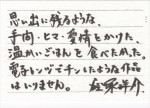 思い出に残るような、
手間・ヒマ・愛情をかけた、
温かいごはんを食べたかった。
電子レンジでチンしたような作品
はいりません。